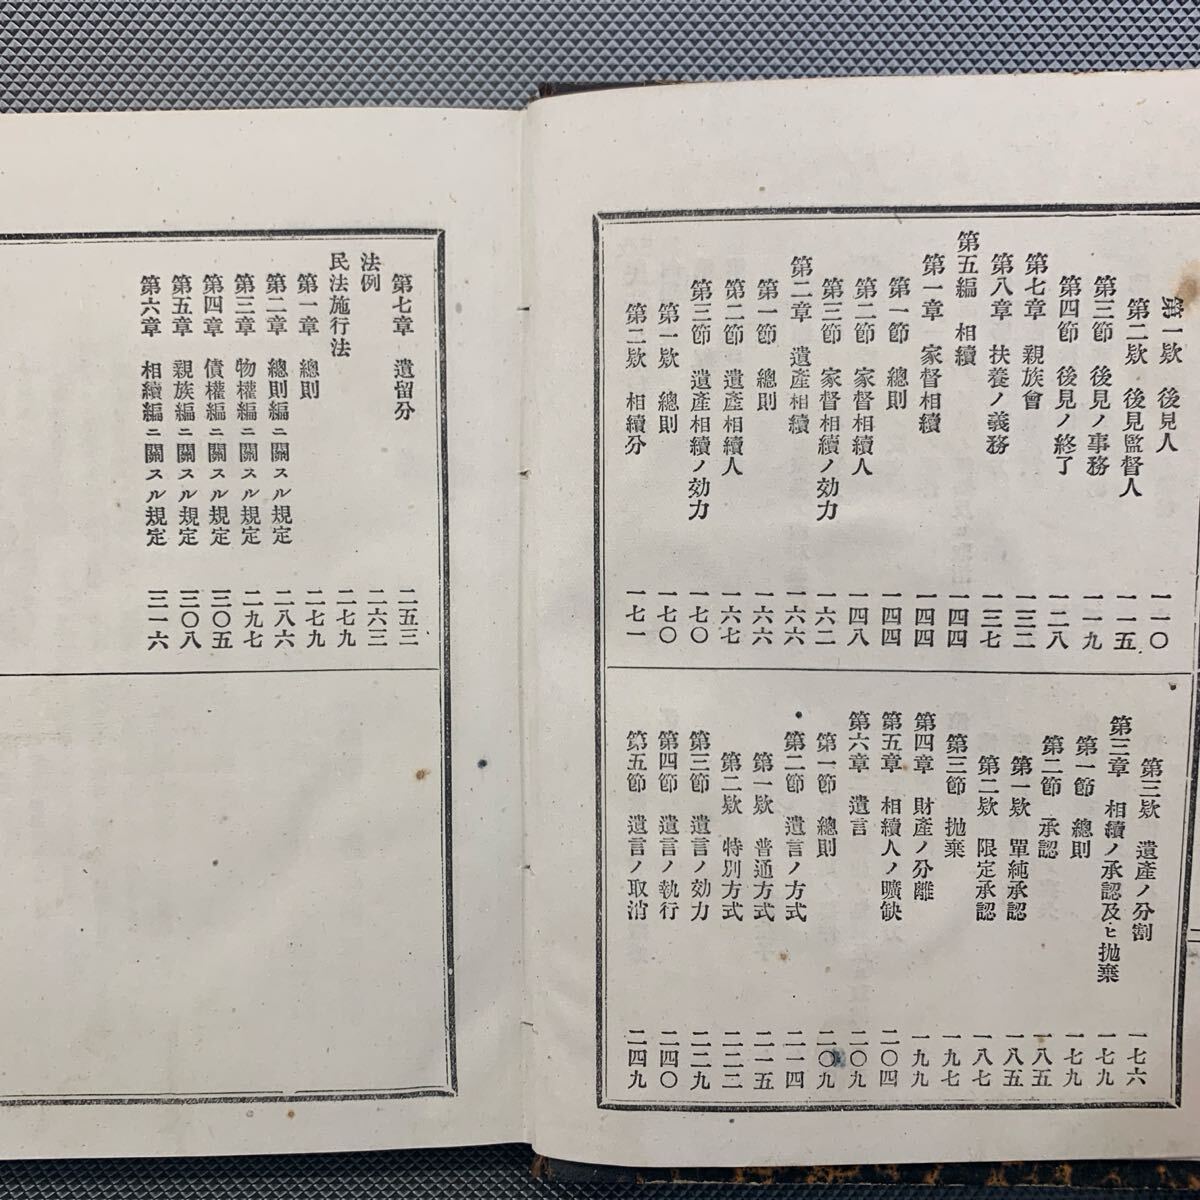 第一欵 後見人 一一〇
第二欵 後見監督人 一一五
第三節 後見ノ事務 一一九
第四節 後見ノ終了 一二八
第七章 親族會 一三二
第八章 扶養ノ義務 一三七
第五編 相續 一四四
第一章 家督相續 一四四
第一節 總則 一四四
第二節 家督相續人 一四八
第三節 家督相續ノ効力 一六二
第二章 遺產相續 一六六
第一節 總則 一六六
第二節 遺產相續人 一六七
第三節 遺產相續ノ効力 一七〇
第一欵 總則 一七〇
第二欵 相續分 一七一
第三欵 遺產ノ分割 一七六
第三章 相續ノ承認及ヒ抛棄 一七九
第一節 總則 一七九
第二節 承認 一八五
第一欵 單純承認 一八五
第二欵 限定承認 一八七
第三節 抛棄 一九七
第四章 財產ノ分離 一九九
第五章 相續人ノ曠缺 二〇四
第六章 遺言 二〇九
第一節 總則 二〇九
第二節 遺言ノ方式 二一四
第一欵 普通方式 二一五
第二欵 特別方式 二二二
第三節 遺言ノ効力 二二九
第四節 遺言ノ執行 二四〇
第五節 遺言ノ取消 二四九
二
第七章 遺留分 二五三
法例 二六三
民法施行法 二七九
第一章 總則 二七九
第二章 總則編ニ關スル規定 二八六
第三章 物權編ニ關スル規定 二九七
第四章 債權編ニ關スル規定 三〇五
第五章 親族編ニ關スル規定 三〇八
第六章 相續編ニ關スル規定 三一六